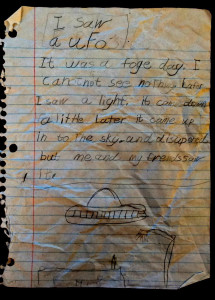 I saw
a UFO
It was a foge day. I
can not see nothing later
I saw a light. it came down
a little later it came up
in to the sky. and disapered
but me and my friend saw
it.